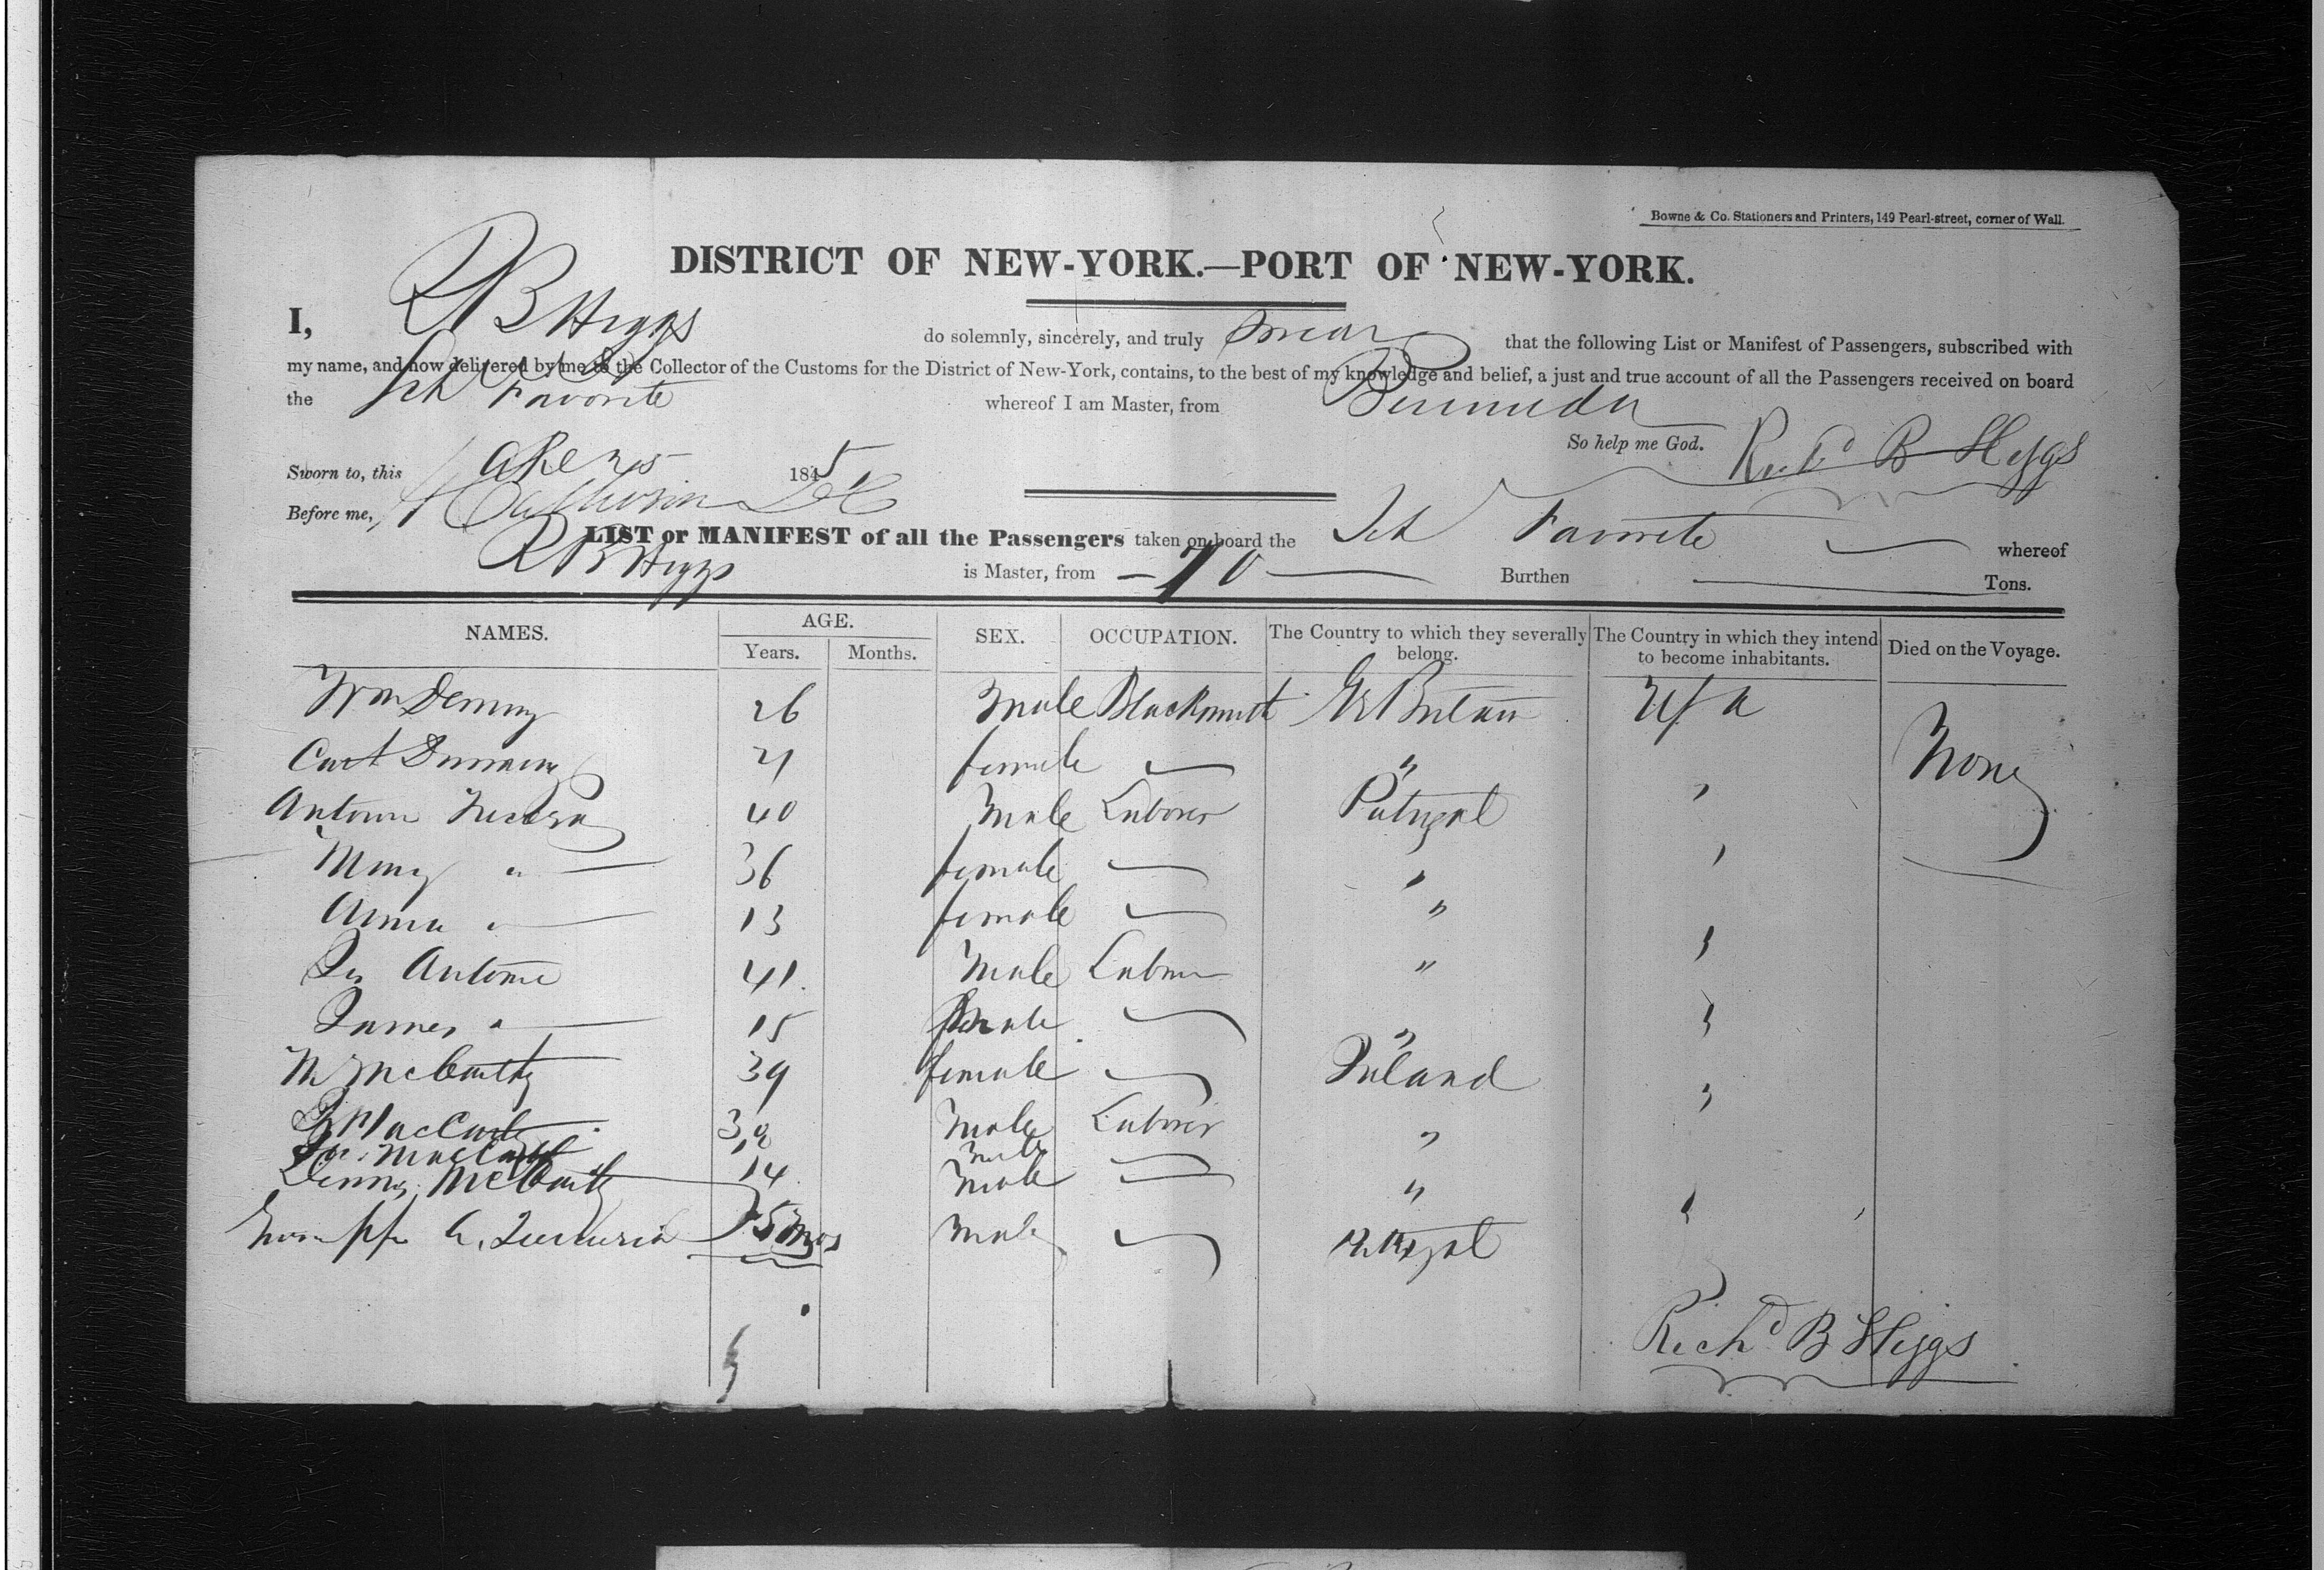 Bowne & Co. Stationers and Printers, 149 Pearl-street, corner of Wall.
DISTRICT OF NEW-YORK.—PORT OF NEW-YORK.
I, R B Higgs do solemnly, sincerely, and truly swear that the following List or Manifest of Passengers, subscribed with
my name, and now delivered by me to the Collector of the Customs for the District of New-York, contains, to the best of my knowledge and belief, a just and true account of all the Passengers received on board
the Sch Favorite whereof I am Master, from Bermuda
So help me God. Richd B Higgs
Sworn to, this 1845
Before me,
LIST or MANIFEST of all the Passengers taken on board the Sch Favorite whereof
R B Higgs is Master, from — 70 — Burthen Tons.
NAMES. AGE. SEX. OCCUPATION. The Country to which they severally belong. The Country in which they intend to become inhabitants. Died on the Voyage.
Years. Months.
Wm 26 Male Blacksmith Gt Britain USA None
21 female "
Antoine 40 Male Laborer Portugal "
Mary " 36 female " "
Anna " 13 female "
Antonie 41 Male Laborer " "
James " 15 Male " "
M McCarthy 39 female Ireland "
Male Laborer "
Male
Dennis McCarthy 14 Male " "
5 Mos Male Portugal
Richd B Higgs